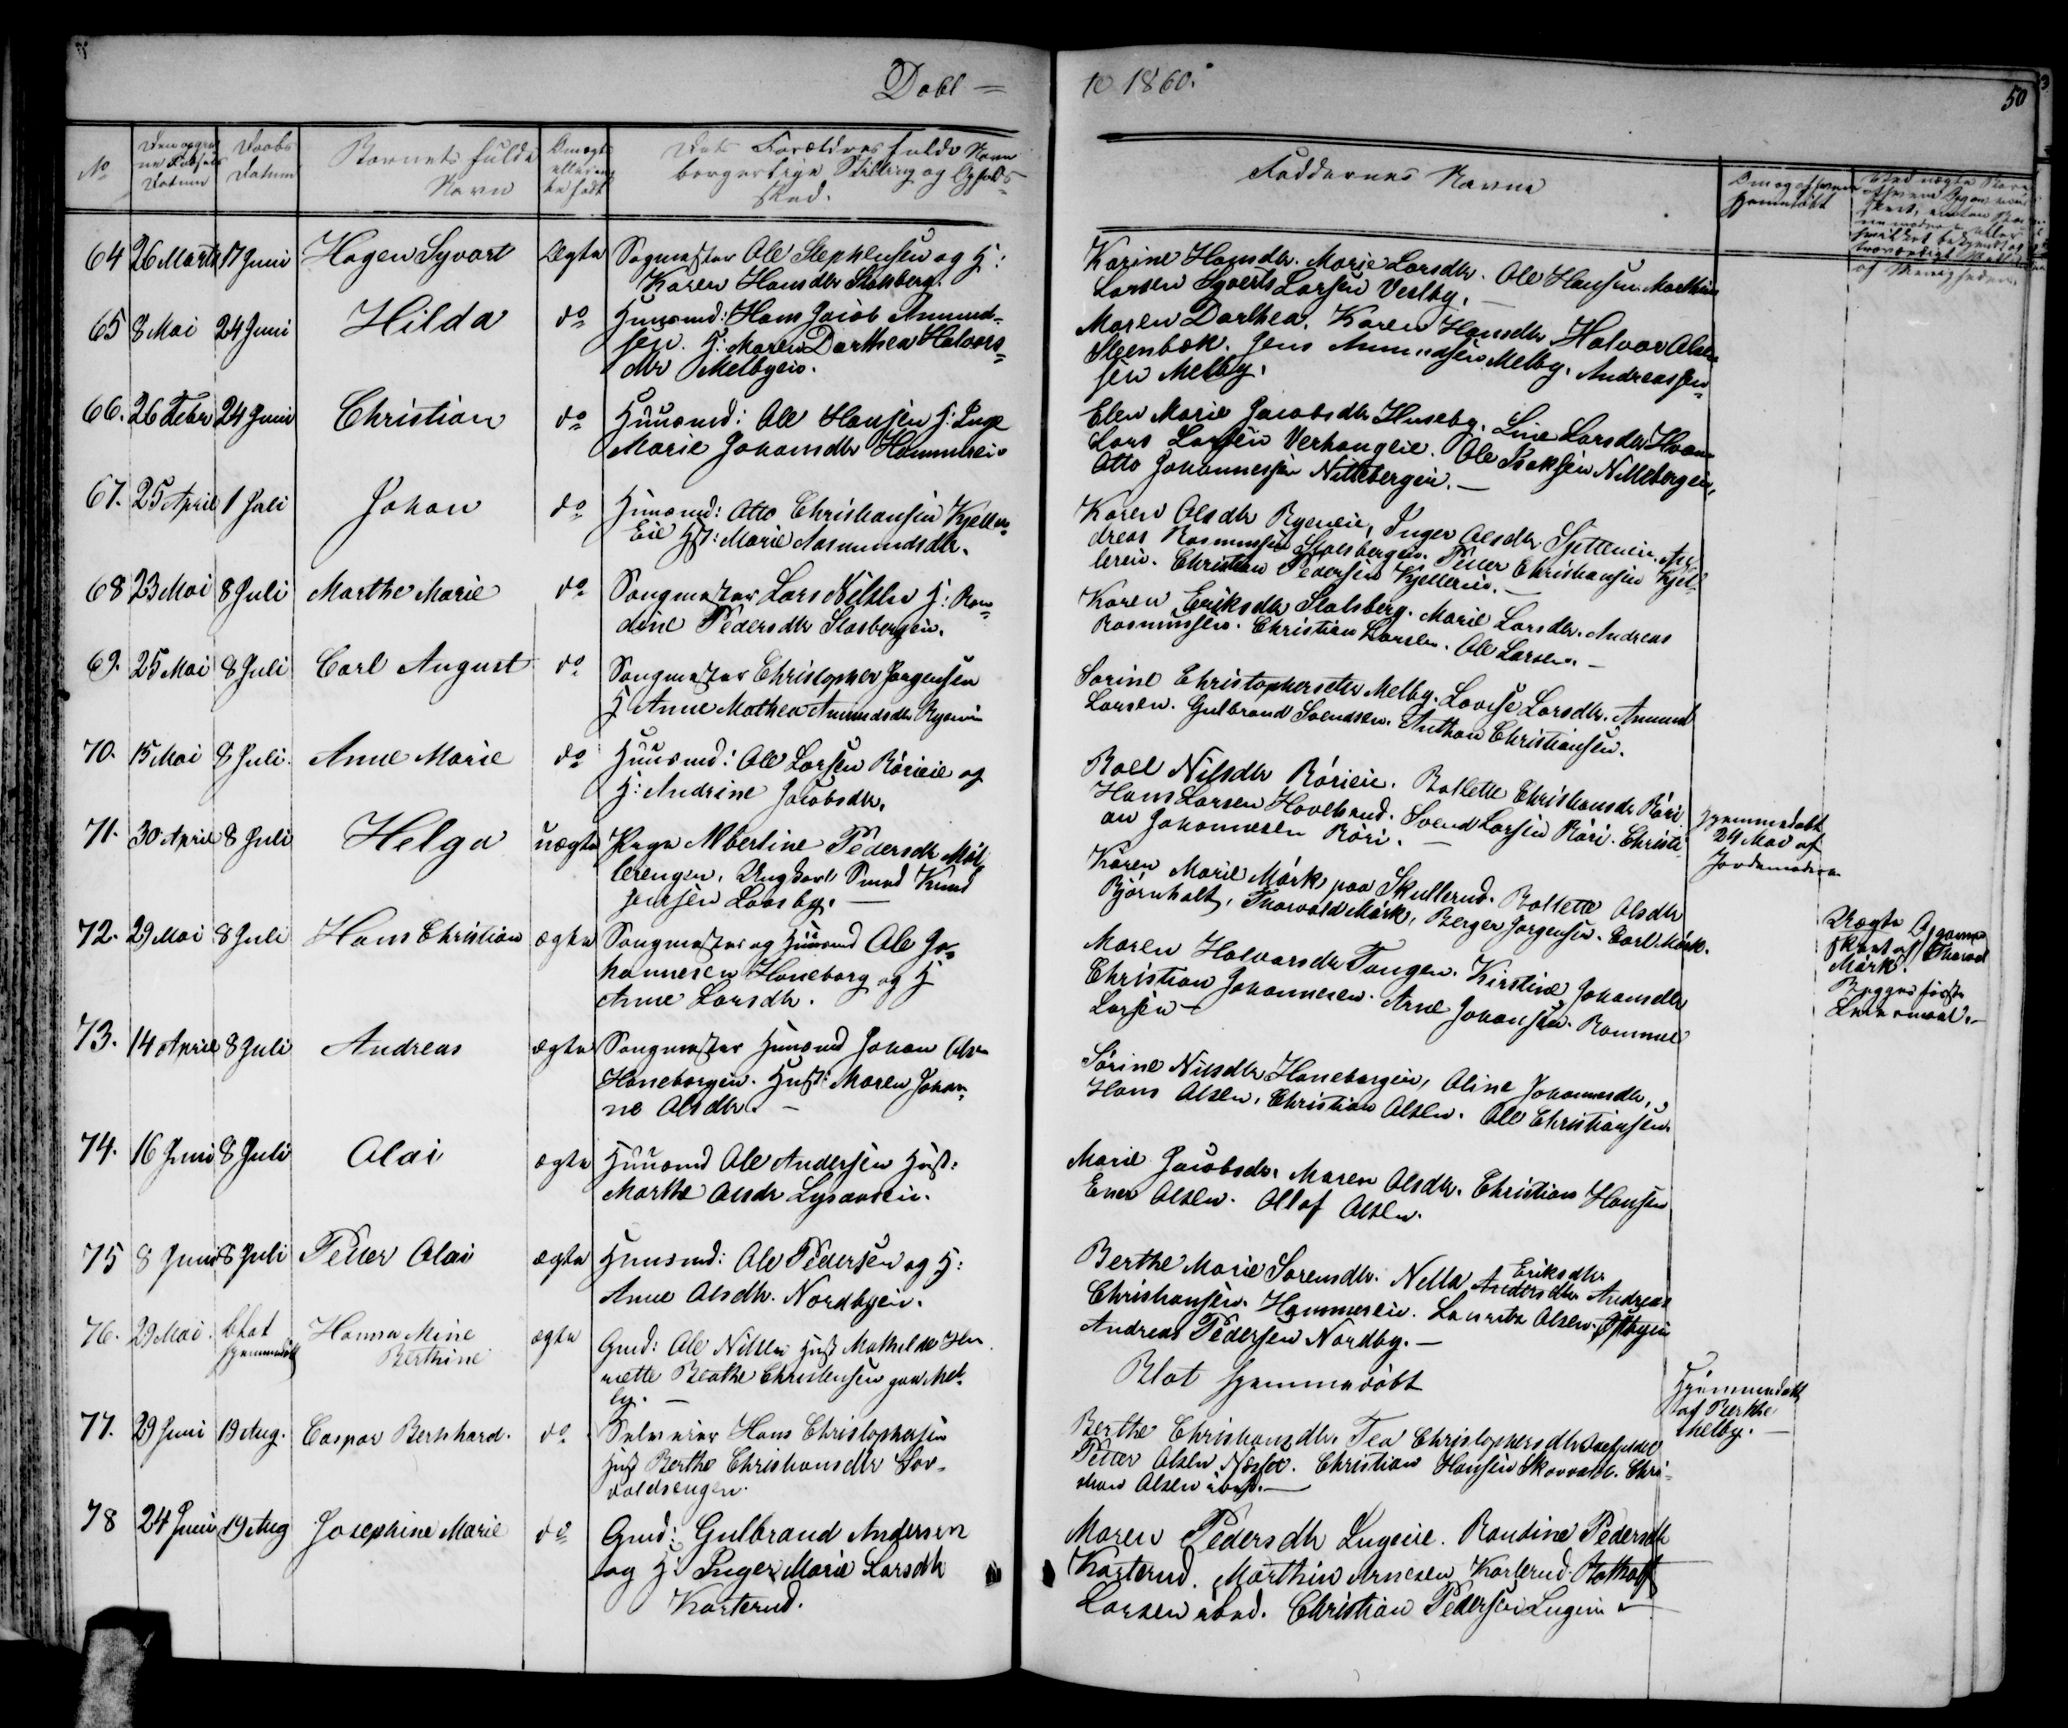 Døbte 1860.
50
No
Den opgivne Fødsels Datum
Daabs Datum
Barnets fulde Navn
Om ægte eller uægte født
Dets Forældres fulde Navn borgerlige Stilling og Opholdssted.
Faddernes Navne
Om og af hvem hjemmedøbt
64 26 Marts 17 Juni Hagen Syvart Ægte Sagmester Ole Stephensen og H:
Karen Hansdtr Stolsberg.
Karine Hansdtr. Marie Larsdtr. Ole Hansen. Marthin
Larsen Syverts Larsen Vestby. —
65 8 Mai 24 Juni Hilda do Huusmd: Hans Jacob Amund-
sen. H: Maren Dorthea Halvors-
dtr Melbyeie.
Maren Dorthea. Karen Hansdtr Halvor Olsen
Steenbæk. Jens Amundsen Melby. Andreas Jen-
sen Melby.
66. 26 Febr 24 Juni Christian do Huusmd: Ole Hansen H: Inge
Marie Johansdtr Hammerei
Elen Marie Jacobsdtr Huseby. Line Larsdtr
Lars Larsen Verhaugeie. Ole Isaksen Nillebergeie,
Otto Johannessen Nillebergeie. —
67. 25 April 1 Juli Johan do Huusmd: Otto Christiansen Kjeller
Eie Hst: Marie Aasmundsdtr.
Karen Olsdtr Ryeneie, Inger Olsdtr. An-
dreas Rasmussen Stolsbergeie. Petter Christiansen Kjel-
lereie. Christian Pedersen Kjellereie. —
68 23 Mai 8 Juli Marthe Marie do Saugmester Lars Nilsen H: Ran-
dine Pedersdtr Stasbergeie.
Karen Eriksdtr Stolsberg. Marie Larsdtr. Andreas
Rasmussen. Christian Larsen. Ole Larsen. —
69. 25 Mai 8 Juli Carl August do Saugmester Christopher Jørgensen
H Anne Mathea Amundsdtr Ryeneie
Sorine Christophersdtr Melby. Lovise Larsdtr. Amund
Larsen. Gulbrand Svendsen. Anthon Christiansen.
70. 15 Mai 8 Juli. Anne Marie do Huusmd: Ole Larsen Rörieie og
H: Andrine Jacobsdtr.
Boel Nilsdtr Rörieie. Bollette Christiansdr Röri
Hans Larsen Hovelsrud. Svend Larsen Röri. Christi-
an Johannesen Röri. —
Hjemmedøbt
24 Mai af
Jordemoderen
71. 30 April 8 Juli Helga uægte Pige Albertine Pedersdtr Möl-
lerengen. Ungkarl Smed Knud
Jensen Laasby. —
Karen Marie Mörk paa Skullerud. Bollette Olsdtr
Björnholt, Thorvald Mörk, Berger Jørgensen. Carl Mörk.
Uægte Opgivne
skeet af Thorval
Mörk.
Begges første
Leiermaal. —
72. 29 Mai 8 Juli Hans Christian ægte Saugmester og Huusmd Ole Jo-
hannesen Haneborg og H
Anne Larsdtr.
Maren Halvorsdtr Tangen. Kirstine Johansdtr
Christian Johannesen. Arne Johansen. Rommel
Larsen —
73. 14 April 8 Juli Andreas ægte Saugmester Huusmd Johan Olsen
Haneborgeie. Hust: Maren Johan-
ne Olsdtr. —
Sörine Nilsdtr Haneborgeie, Oline Johannesdtr.,
Hans Olsen, Christian Olsen. Ole Christiansen.
74. 16 Juni 8 Juli Olai ægte Huusmd Ole Andersen Hust:
Marthe Olsdr Lysaaseie.
Marie Jacobsdr. Maren Olsdtr. Christian Hansen
Ener Olsen. Ollaf Olsen.
75 8 Juni 8 Juli Petter Olai ægte Huusmd: Ole Pedersen og H:
Anne Olsdtr. Nordbyeie.
Berthe Marie Sørensdtr. Nella Andersdtr Eriksdtr Andreas
Christiansen. Hammereie. Lauritz Olsen. Østbyeie
Andreas Pedersen Nordby. —
76. 29 Mai. blot hjemmedöbt Hanna Mine
Berthine
ægte Gmd: Ole Nilsen Hust Mathilde Hen
riette Beathe Christensen paa Mel-
by. —
Blot hjemmedöbt
Hjemmedøbt
af Berthe
Melby. —
77. 29 Juni 19 Aug. Caspar Bernhard. do Selveier Hans Christophersen
Hust Berthe Christiansdtr Tor-
valdsengen.
Berthe Christiansdtr. Tea Christophersdtr
Petter Olsen Næsset. Christian Hansen Skorvald. Chri-
stian Olsen ibid. —
78 24 Juni 19 Aug Josephine Marie do Gmd: Gulbrand Andersen
og H: Inger Marie Larsdtr
Karterud.
Maren Pedersdtr Lugeeie. Randine Pedersdtr
Karterud. Marthin Arnesen Karterud.
Larsen ibid. Christian Pedersen Lugeeie —